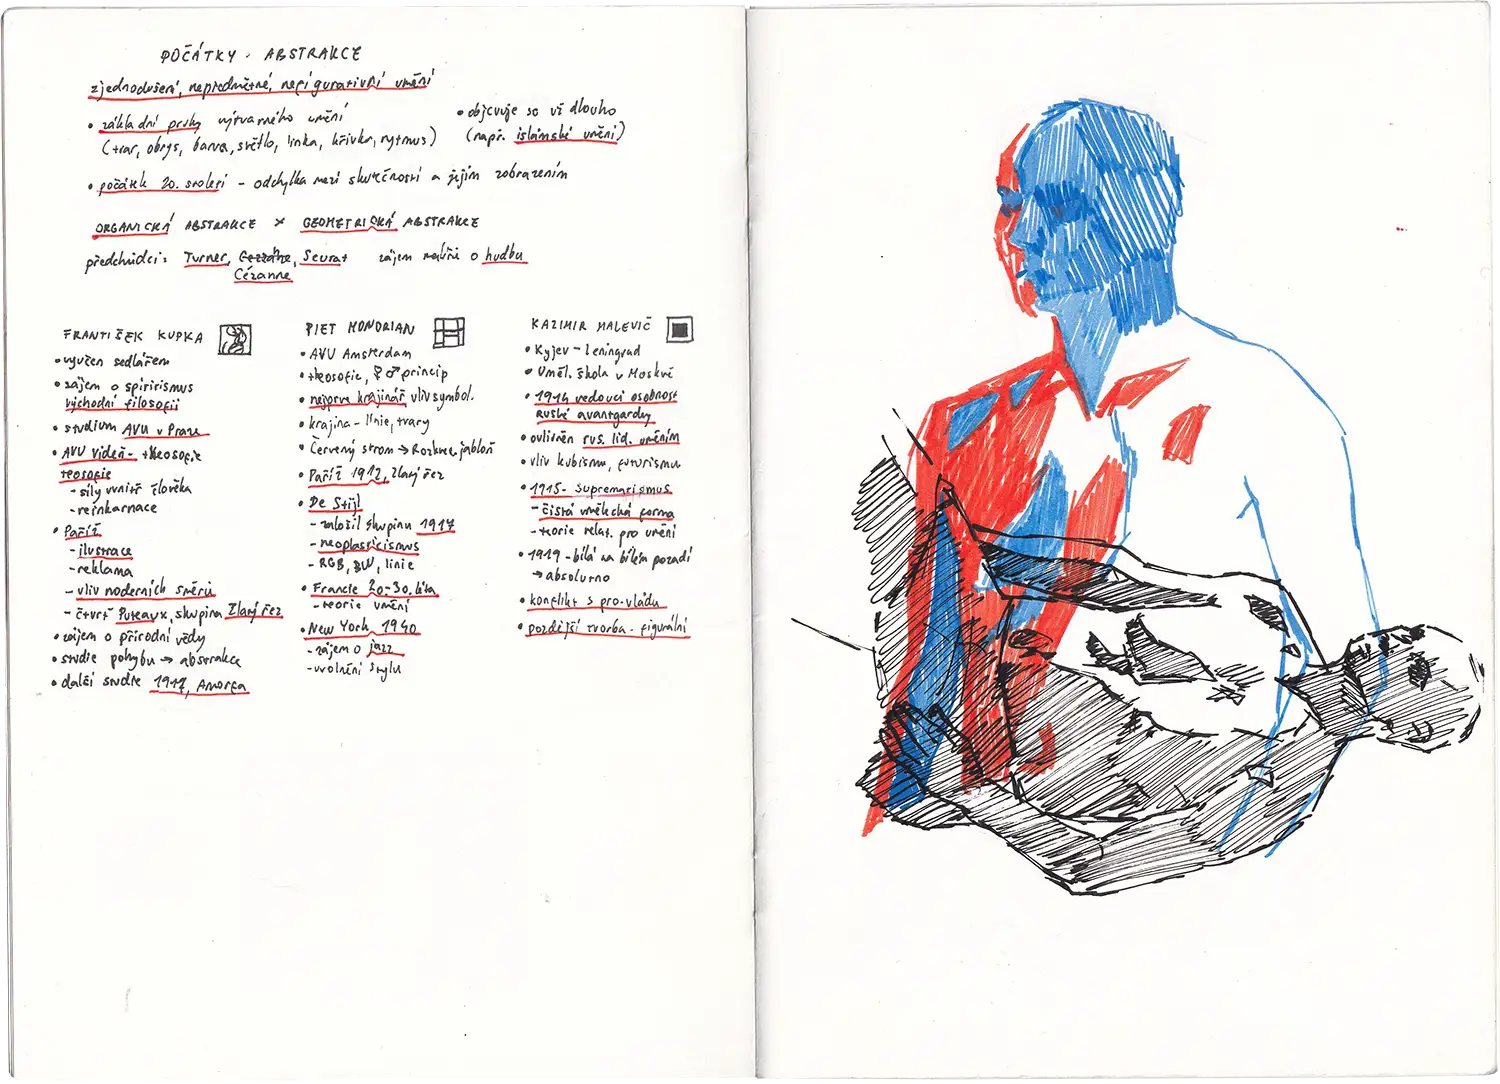 POČÁTKY · ABSTRAKCE
zjednodušení, nepředmětné, nefigurativní umění
• základní prvky výtvarného umění
(tvar, obrys, barva, světlo, linka, křivka, rytmus)
• objevuje se už dlouho
(např. islámské umění)
• počátek 20. století - odchylka mezi skutečností a jejím zobrazením
ORGANICKÁ ABSTRAKCE × GEOMETRICKÁ ABSTRAKCE
předchůdci: Turner, Cezzane, Seurat zájem malířů o hudbu
Cézanne
FRANTIŠEK KUPKA
• vyučen sedlářem
• zájem o spiritismus
východní filosofii
• studium AVU v Praze
• AVU Vídeň - theosofie
teosofie
- síly uvnitř člověka
- reinkarnace
• Paříž
- ilustrace
- reklama
- vliv moderních směrů
- čtvrť Puteaux, skupina Zlatý řez
• zájem o přírodní vědy
• studie pohybu → abstrakce
• další studie 1912, Amorfa
PIET MONDRIAN
• AVU Amsterdam
• theosofie, ♀ ♂ princip
• nejprve krajinář vliv symbol.
• krajina - linie, tvary
• Červený strom → Rozkve. jabloň
• Paříž 1912, Zlatý řez
• De Stijl
- založil skupinu 1917
- neoplasticismus
- RGB, BW, linie
• Francie 20.-30. léta
- teorie umění
• New York 1940
- zájem o jazz
- uvolnění stylu
KAZIMIR MALEVIČ
• Kyjev - Leningrad
• Uměl. škola v Moskvě
• 1914 vedoucí osobnost
Ruské avantgardy
• ovlivněn rus. lid. uměním
• vliv kubismu, futurismu
• 1915 - suprematismus
- čistá umělecká forma
- teorie relat. pro umění
• 1919 - bílá na bílém pozadí
→ absolutno
• konflikt s pro-vládu
• pozdější tvorba - figurální